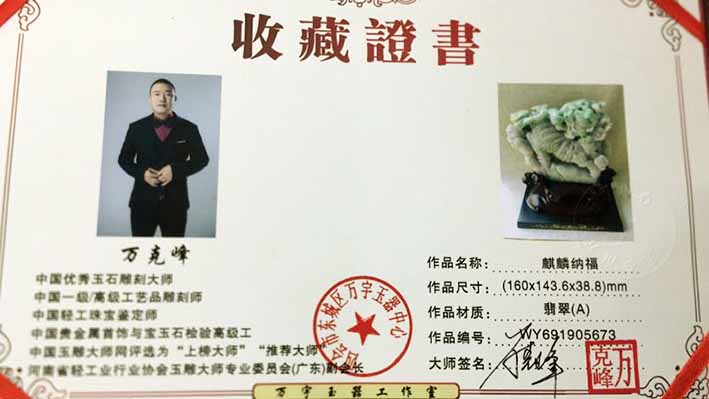 收藏證書
万克峰
中国优秀玉石雕刻大师
中国一级/高级工艺品雕刻师
中国轻工珠宝鉴定师
中国贵金属首饰与宝玉石检验高级工
中国玉雕大师网评选为“上榜大师”“推荐大师”
河南省轻工业行业协会玉雕大师专业委员会(广东)副会长
作品名称: 麒麟纳福
作品尺寸: (160x143.6x38.8)mm
作品材质: 翡翠(A)
作品编号: WY691905673
大师签名:
万克峰
会市东城区万宇玉器中心
万宇玉器工作室